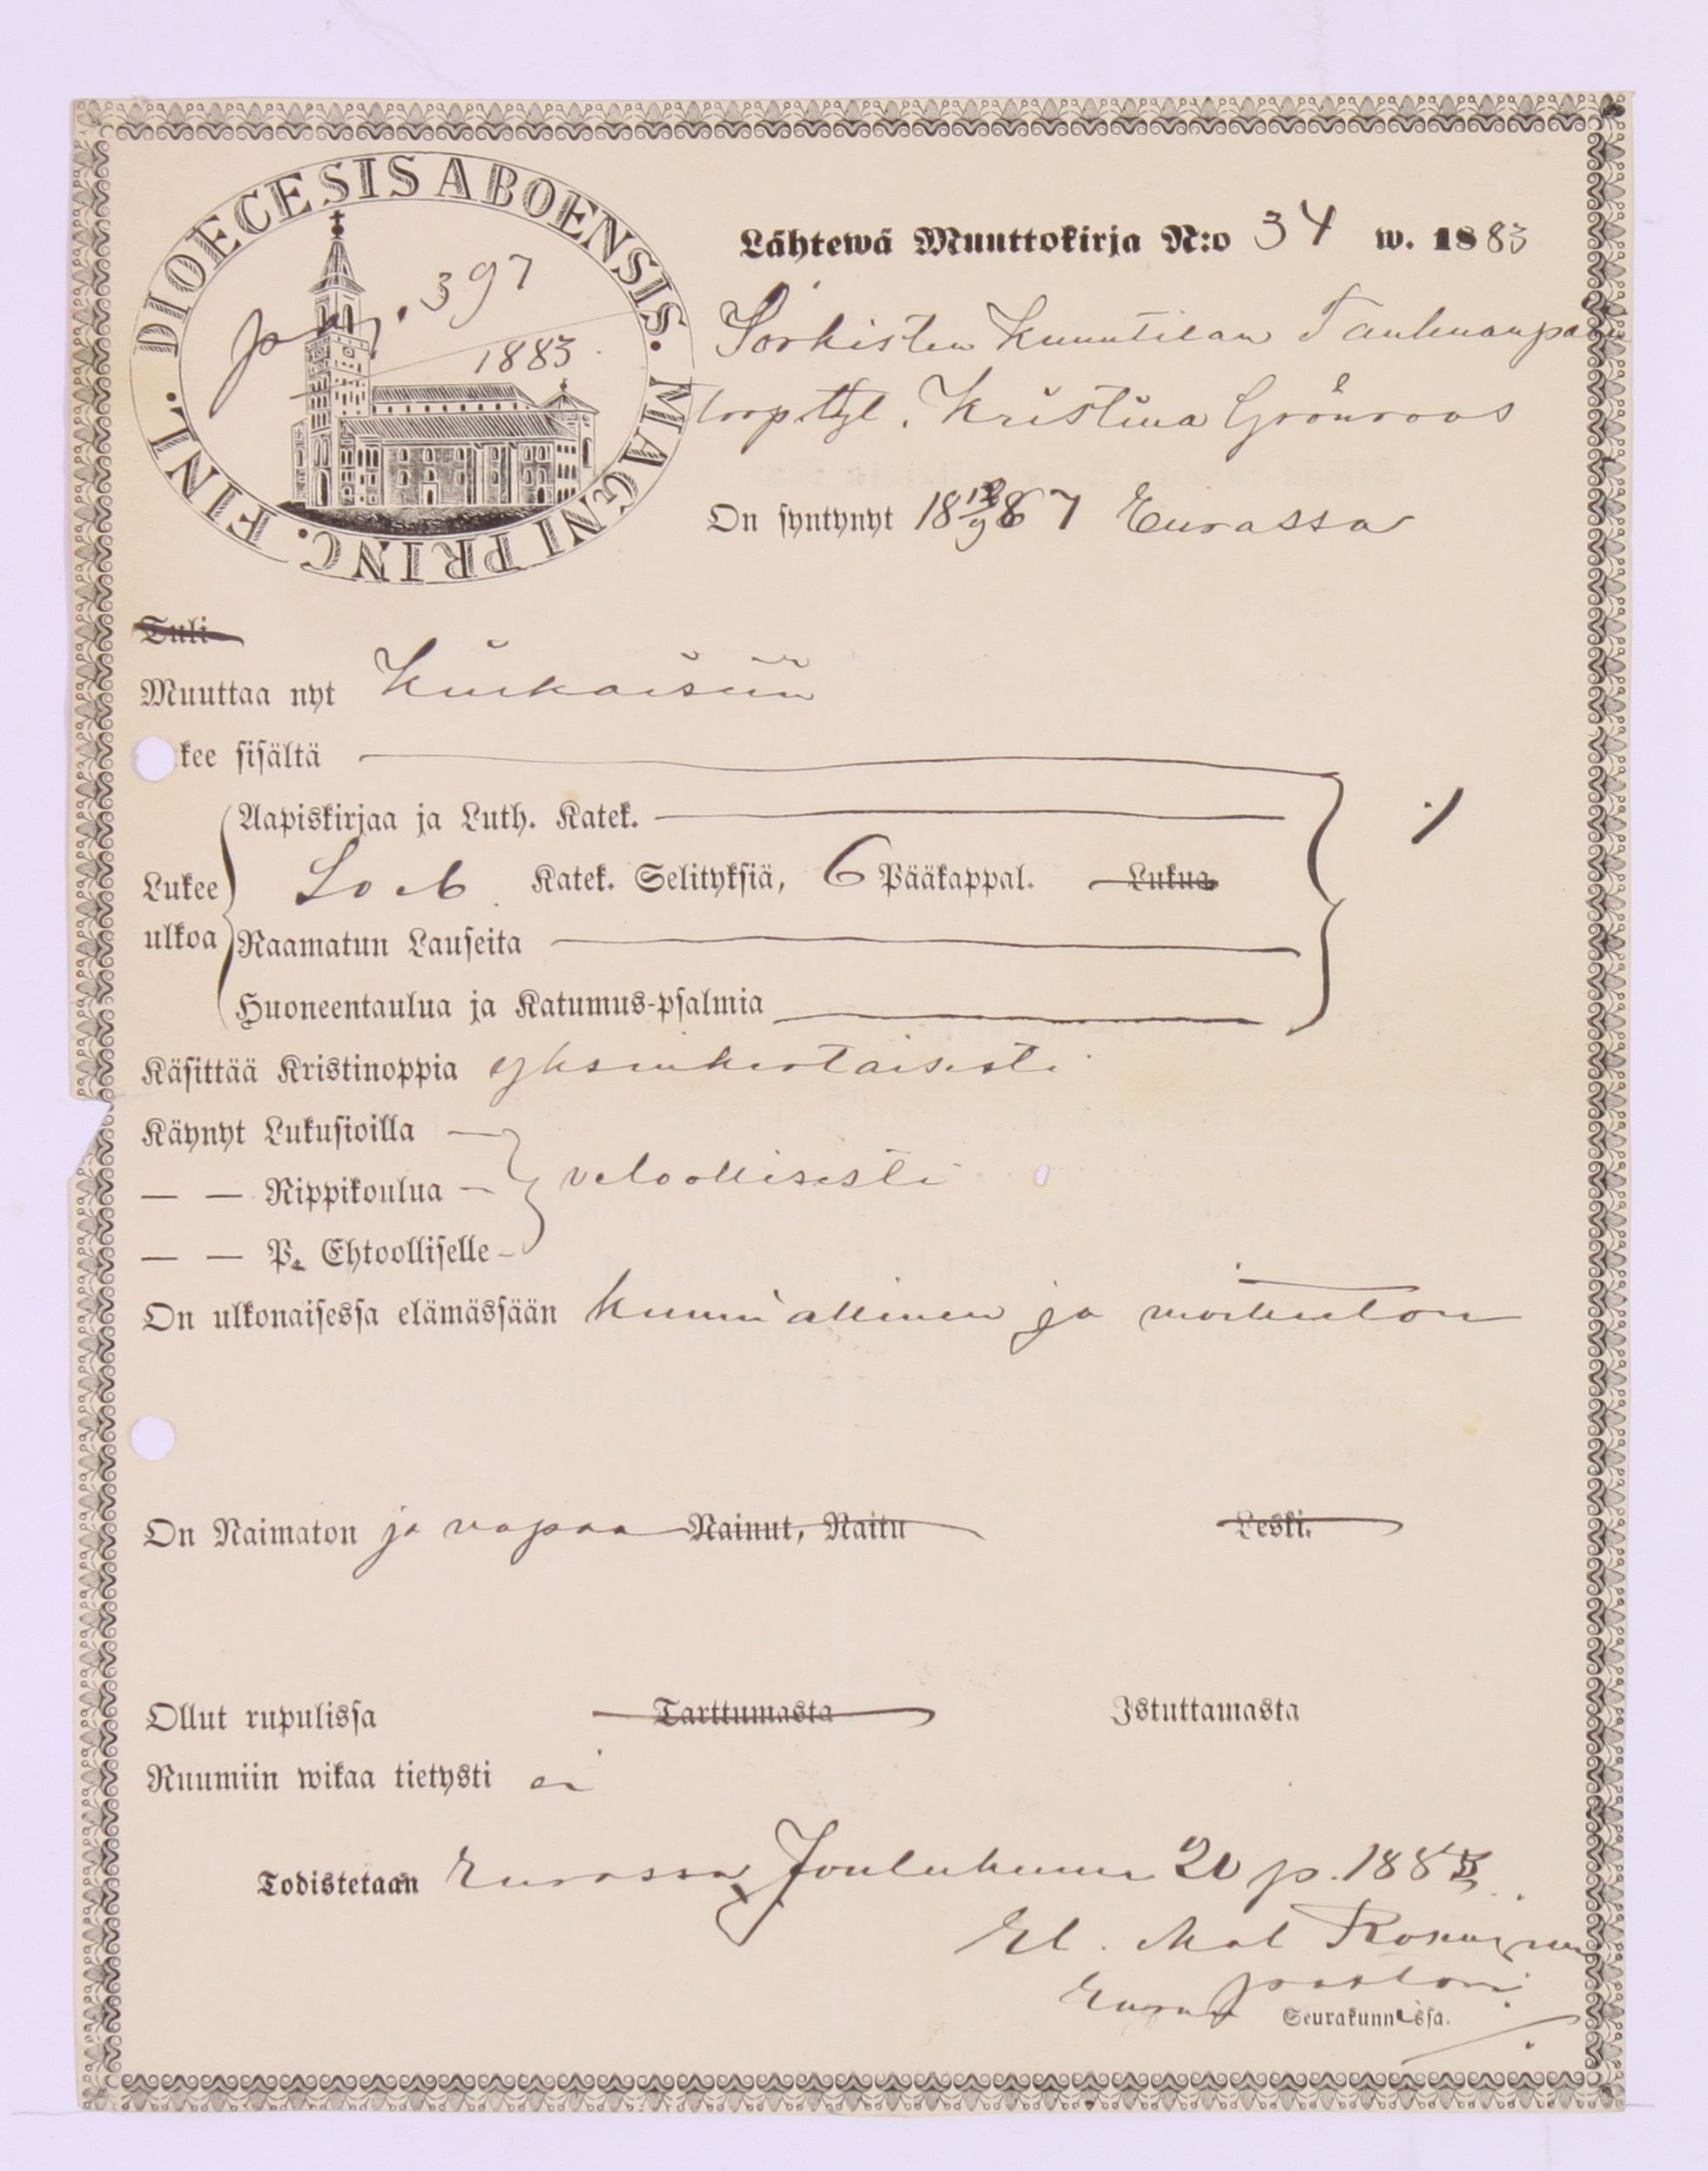 DIOECESIS ABOENSIS. MAGNI PRINC. FINL.
pag. 397
1883
Lähtewä Muuttokirja N:o 34 w. 1883
Sorkisten Kuuutilan
Kristina Grönroos
On syntynyt 18 67 Eurassa
Tuli
Muuttaa nyt Kiukaisiin
kee sisältä
Aapiskirjaa ja Luth. Katek.
Lukee ulkoa
Katek. Selityksiä, 6 Pääkappal. Lukua
Raamatun Lauseita
Huoneentaulua ja Katumus-psalmia
Käsittää Kristinoppia yksinkertaisesti
Käynyt Lukusioilla
— — Rippikoulua
velvollisesti
— — P. Ehtoolliselle
On ulkonaisessa elämässään kunniallinen ja moitteeton
On Naimaton ja vapaa Nainut, Naitu Leski.
Ollut rupulissa Tarttumasta Istuttamasta
Ruumiin wikaa tietysti ei
Todistetaan Eurassa Joulukuun 20 p. 1883.
pastori
Euran Seurakunnassa.